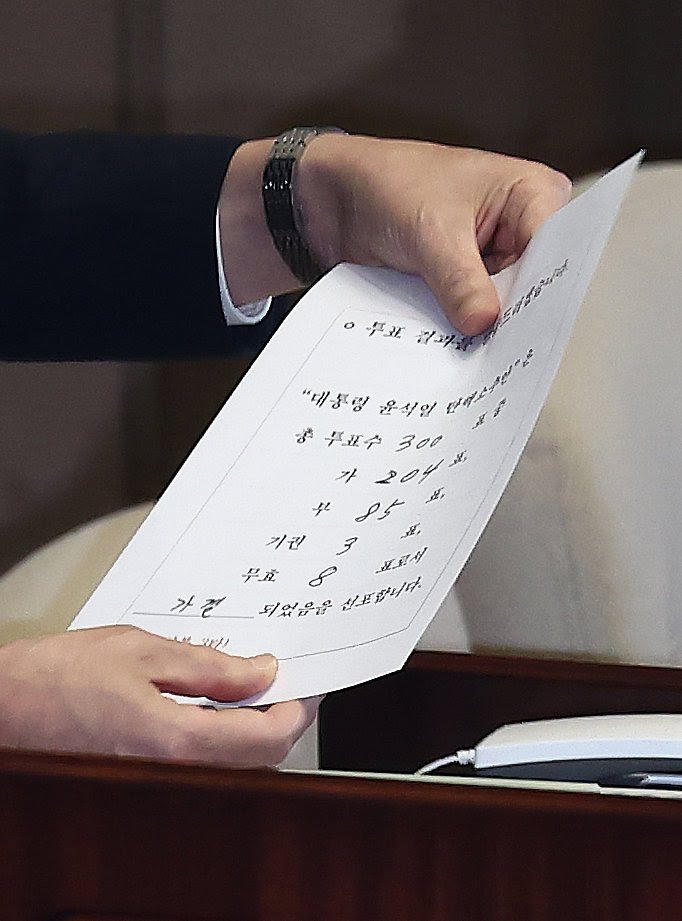 ○ 투표 결과를 드리겠습니다.
"대통령 윤석열 탄핵소추안"은
총 투표수 300 표 중
가 204 표,
부 85 표,
기권 3 표,
무효 8 표로서
가결 되었음을 선포합니다.